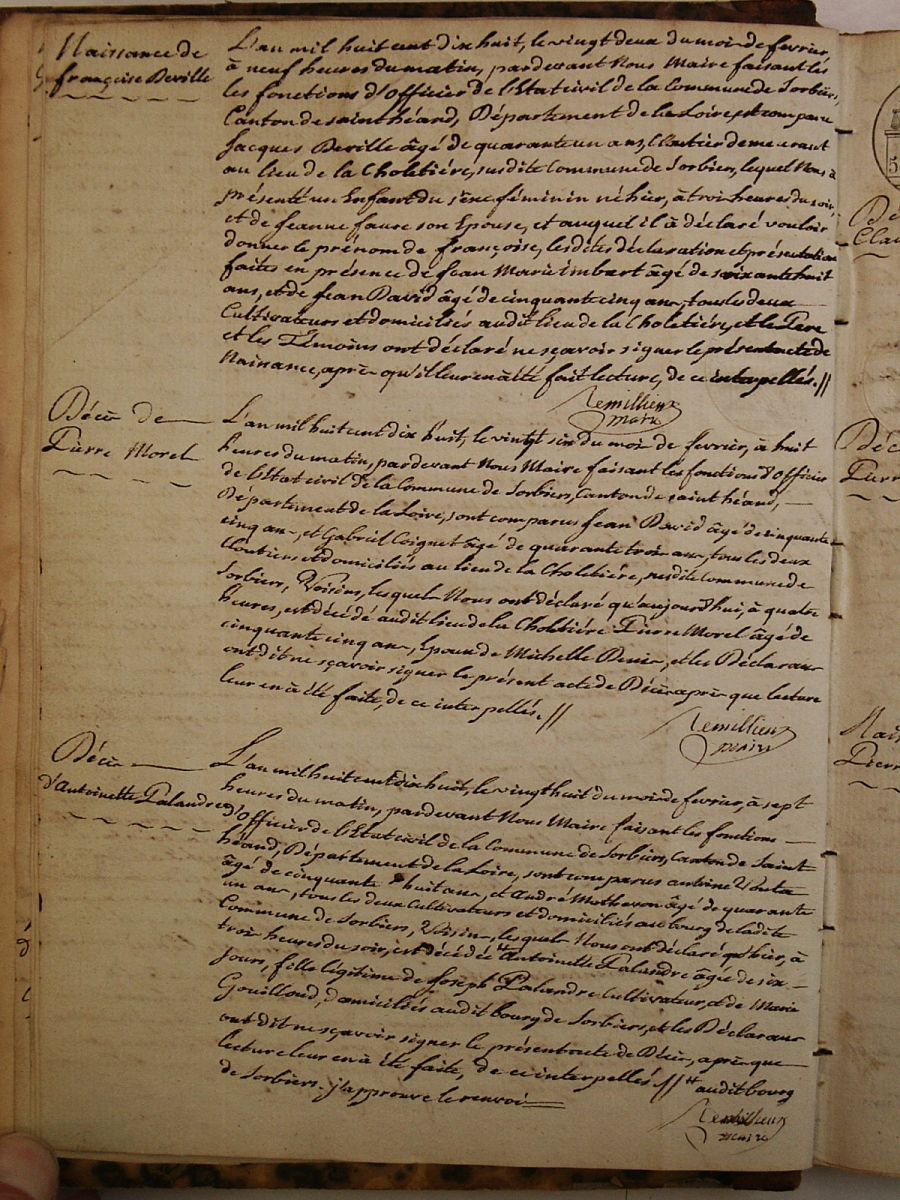 Naissance de
françoise Deville
L'an mil huit cent dix huit, le vingt deux du moi de fevrier,
à neuf heures du matin, pardevant Nous Maire faisant les
les fonctions d'Officier de l'Etat civil de la Commune de Sorbiers,
Canton de saint héand, Département de la Loire est comparu
Jacques Deville âgé de quarante un ans, Cloutier demeurant
au lieu de la Choletière, susdite Commune de Sorbiers, lequel Nous a
présenté un Enfant du sèxe féminin né hier, à troi heures du soir,
et de Jeanne faure son Epouse, et auquel il à déclaré vouloir
donner le prénom de françoise, lesdites déclaration et présentation
faites en présence de Jean Marie imbert âgé de soixante huit
ans, et de Jean David âgé de cinquante cinq ans, tous les deux
Cultivateurs et domiciliés audit lieu de la Choletière, et le Pere
et les Témoins ont déclaré ne sçavoir signer le présent acte de
Naissance, après qu'il leur en à été fait lecture, de ce interpellés.//
Remillieux
maire
Décès de
Pierre Morel
L'an mil huit cent dix huit, le vingt six du moi de fevrier, à huit
heures du matin, pardevant Nous Maire faisant les fonctions d'Officier
de l'Etat civil de la Commune de Sorbiers, Canton de saint héand,
Département de la Loire, sont comparus Jean David âgé de cinquante
cinq ans, et Gabriel Coignet âgé de quarante trois ans, tous les deux
Cloutiers et domiciliés au lieu de la Choletière, susdite Commune de
Sorbiers, Voisins, lesquels Nous ont déclaré qu'aujourd'hui, à quatre
heures, est décédé audit lieu de la Choletière Pierre Morel âgé de
cinquante cinq ans, Epoux de Michelle Denis, et les Déclarans
ont dit ne sçavoir signer le présent acte de Décès après que lecture
leur en à été faite, de ce interpellés.//
Remillieux
maire
Décès
d'Antoinette Palandre
L'an mil huit cent dix huit, le vingt huit du moi de fevrier, à sept
heures du matin, pardevant Nous Maire faisant les fonctions
d'Officier de l'Etat civil de la Commune de Sorbiers, Canton de Saint
héand, Département de la Loire, sont comparus antoine
âgé de cinquante huit ans, et André Matheron âgé de quarante
un ans, tous les deux Cultivateurs et domiciliés au bourg de ladite
Commune de Sorbiers, Voisins, lesquels Nous ont déclaré qu'hier, à
troi heures du soir, est décédée Antoinette Palandre âgée de six
Jours, fille légitime de Joseph Palandre Cultivateur, et de Marie
Gouilloud, domiciliés audit bourg de Sorbiers, et les Déclarans
ont dit ne sçavoir signer le présent acte de Décès, après que
lecture leur en à été faite, de ce interpellés // audit bourg
de Sorbiers. j'approuve le renvoi
Remillieux
maire
5
Dé
Clau
Déc
Pierr
Nais
Pierr